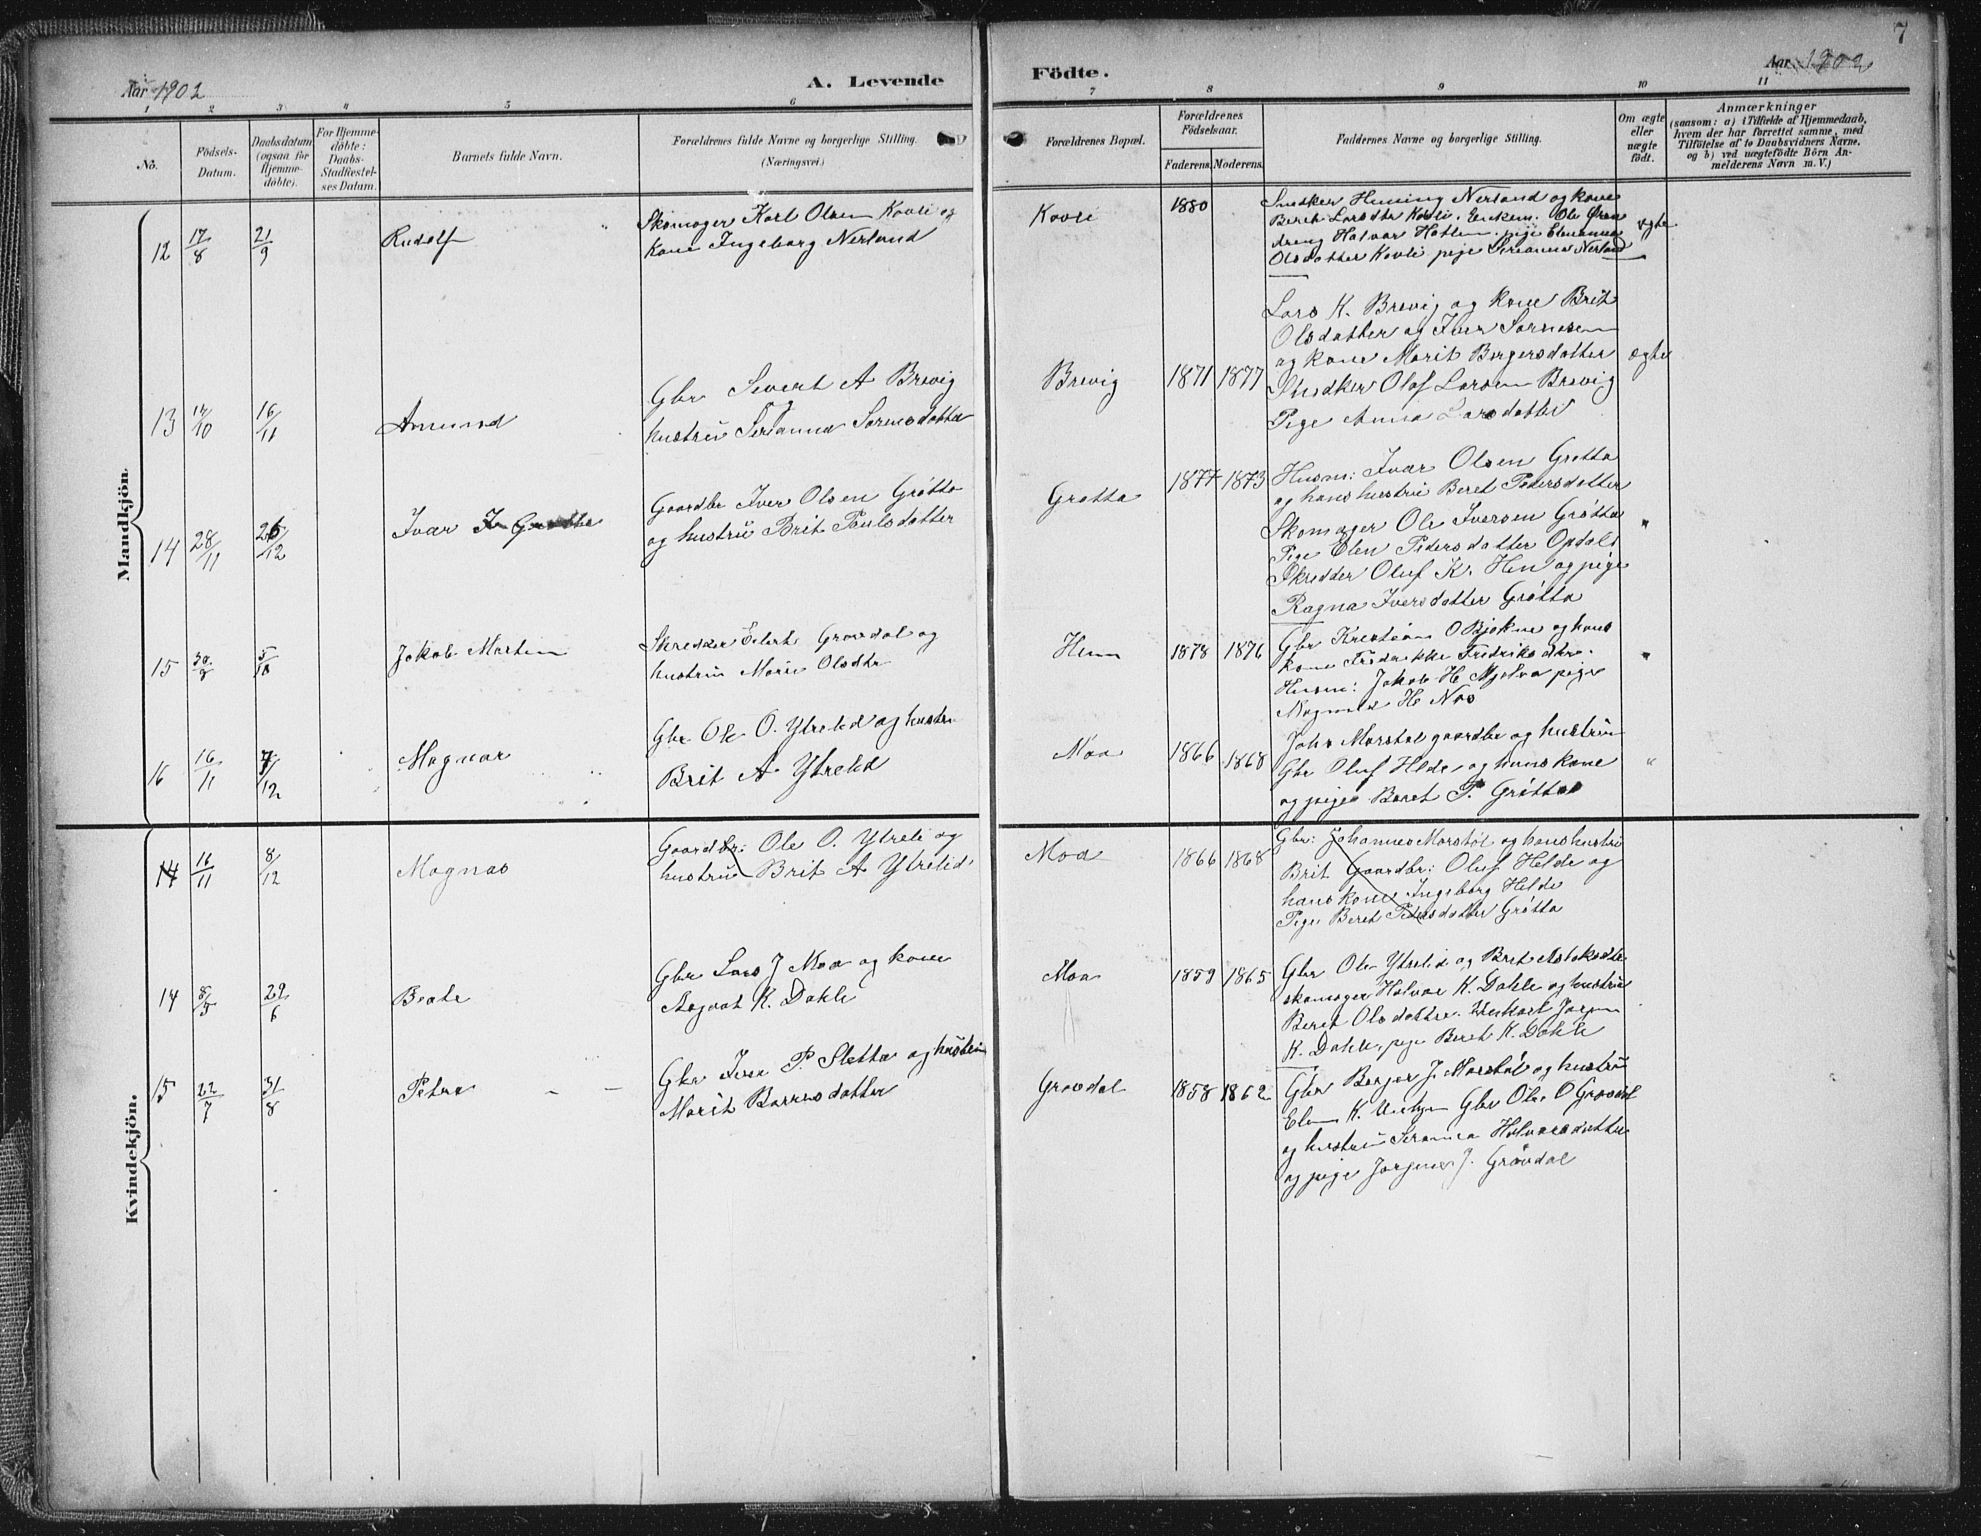 7
Aar 1902
A. Levende
Födte.
Aar 1902
1 2 3 4 5 6 7 8 9 10 11
No.
Födsels-
Datum.
Daabsdatum
(ogsaa for
Hjemme-
döbte).
For Hjemme-
döbte:
Daabs-
Stadfæstel-
ses Datum.
Barnets fulde Navn.
Forældrenes fulde Navne og borgerlige Stilling.
(Næringsvei.)
Forældrenes Bopæl.
Forældrenes
Födselsaar.
Faderens. Moderens.
Faddernes Navne og borgerlige Stilling.
Om ægte
eller
uægte
födt.
Anmærkninger
(saasom: a) i Tilfælde af Hjemmedaab,
hvem der har forrettet samme, med
Tilföielse af to Daabsvidners Navne,
og b) ved uægtefödte Börn An-
melderens Navn m. V.)
Mandkjön.
12 17/8 21/9 Rudolf
Skomager Karl Olsen Kavli og
kone Ingeborg Nerland
Kavli
1880
Snedker Henning Nerland og kone
Beret Larsdtr Kavli. Enkem. Ole
dreng Halvar Hatlen. pige
Olsdatter Kavli pige Serianna Nerland
ægte
13 17/10 16/11 Amund
Gbr Sivert A Brevig
og
hustru Serianna Sørensdatter
Brevig
1871 1877
Lars K. Brevig og kone Brit
Olsdatter og Iver Sørnesen
og kone Marit Bergersdatter
Snedker Olaf Larsen Brevig
Pige Anna Larsdatter
ægte
14 28/11 26/12 Ivar
Gaardbr Iver Olsen Grøtta
og hustru Brit Paulsdatter
Grøtta
1877 1873
Husm: Ivar Olsen Grøtta
og hans hustru Beret Pedersdatter
Skomager Ole Iversen Grøtta
Pige Elen Pedersdatter Opdal
Skredder Oluf K. Hen og pige
Ragna Iversdatter Grøtta
"
15 30/8 5/10 Jakob Martin
Skredker Edert Grøvdal og
hustru Marie Olsdtr
Henn
1878 1876
Gbr Kristian O Bjøkne og hans
kone Fredrikke Fredriksdtr.
Husm: Jakob H Mjelva pige
Magnild H Nas
"
16 16/11 7/12 Magnar
Gbr Ole O. Ytrelid og hustru
Brit A Ytrelid
Moa
1866 1868
John Marstøl gaardbr og hustru
Gbr Oluf Helde og hans kone
og pige Beret P. Grøtta
"
Kvindekjön.
14 16/11 8/12 Magnas
Gaardbr: Ole O. Ytreli og
hustru Brit A Ytrelid
Moa
1866 1868
Gbr: Johannes Marstøl og hans hustru
Brit Gaardbr: Oluf Helde og
hans kone Ingeborg Helde
Pige Beret Pedersdatter Grøtta
14 8/5 29/6 Beate
Gbr Lars J Moa og kone
Asgvat K. Dahle
Moa
1859 1865
Gbr Ole Ytrelid og Beret Aslaksdtr
skomager Halvar K. Dahle og hustru
Beret Olsdatter. Unkarl Jørgen
K. Dahle, pige Beret K. Dahle
15 22/7 31/8 Petra
Gbr Iver P. Sletta og hustru
Marit Børresdatter
Grøvdal
1858 1862
Gbr Berger J. Marstøl og hustru
Elen K. Gbr Ole O Grøvdal
og hustru Serianna Halvorsdatter
og pige Jørgine J. Grøvdal